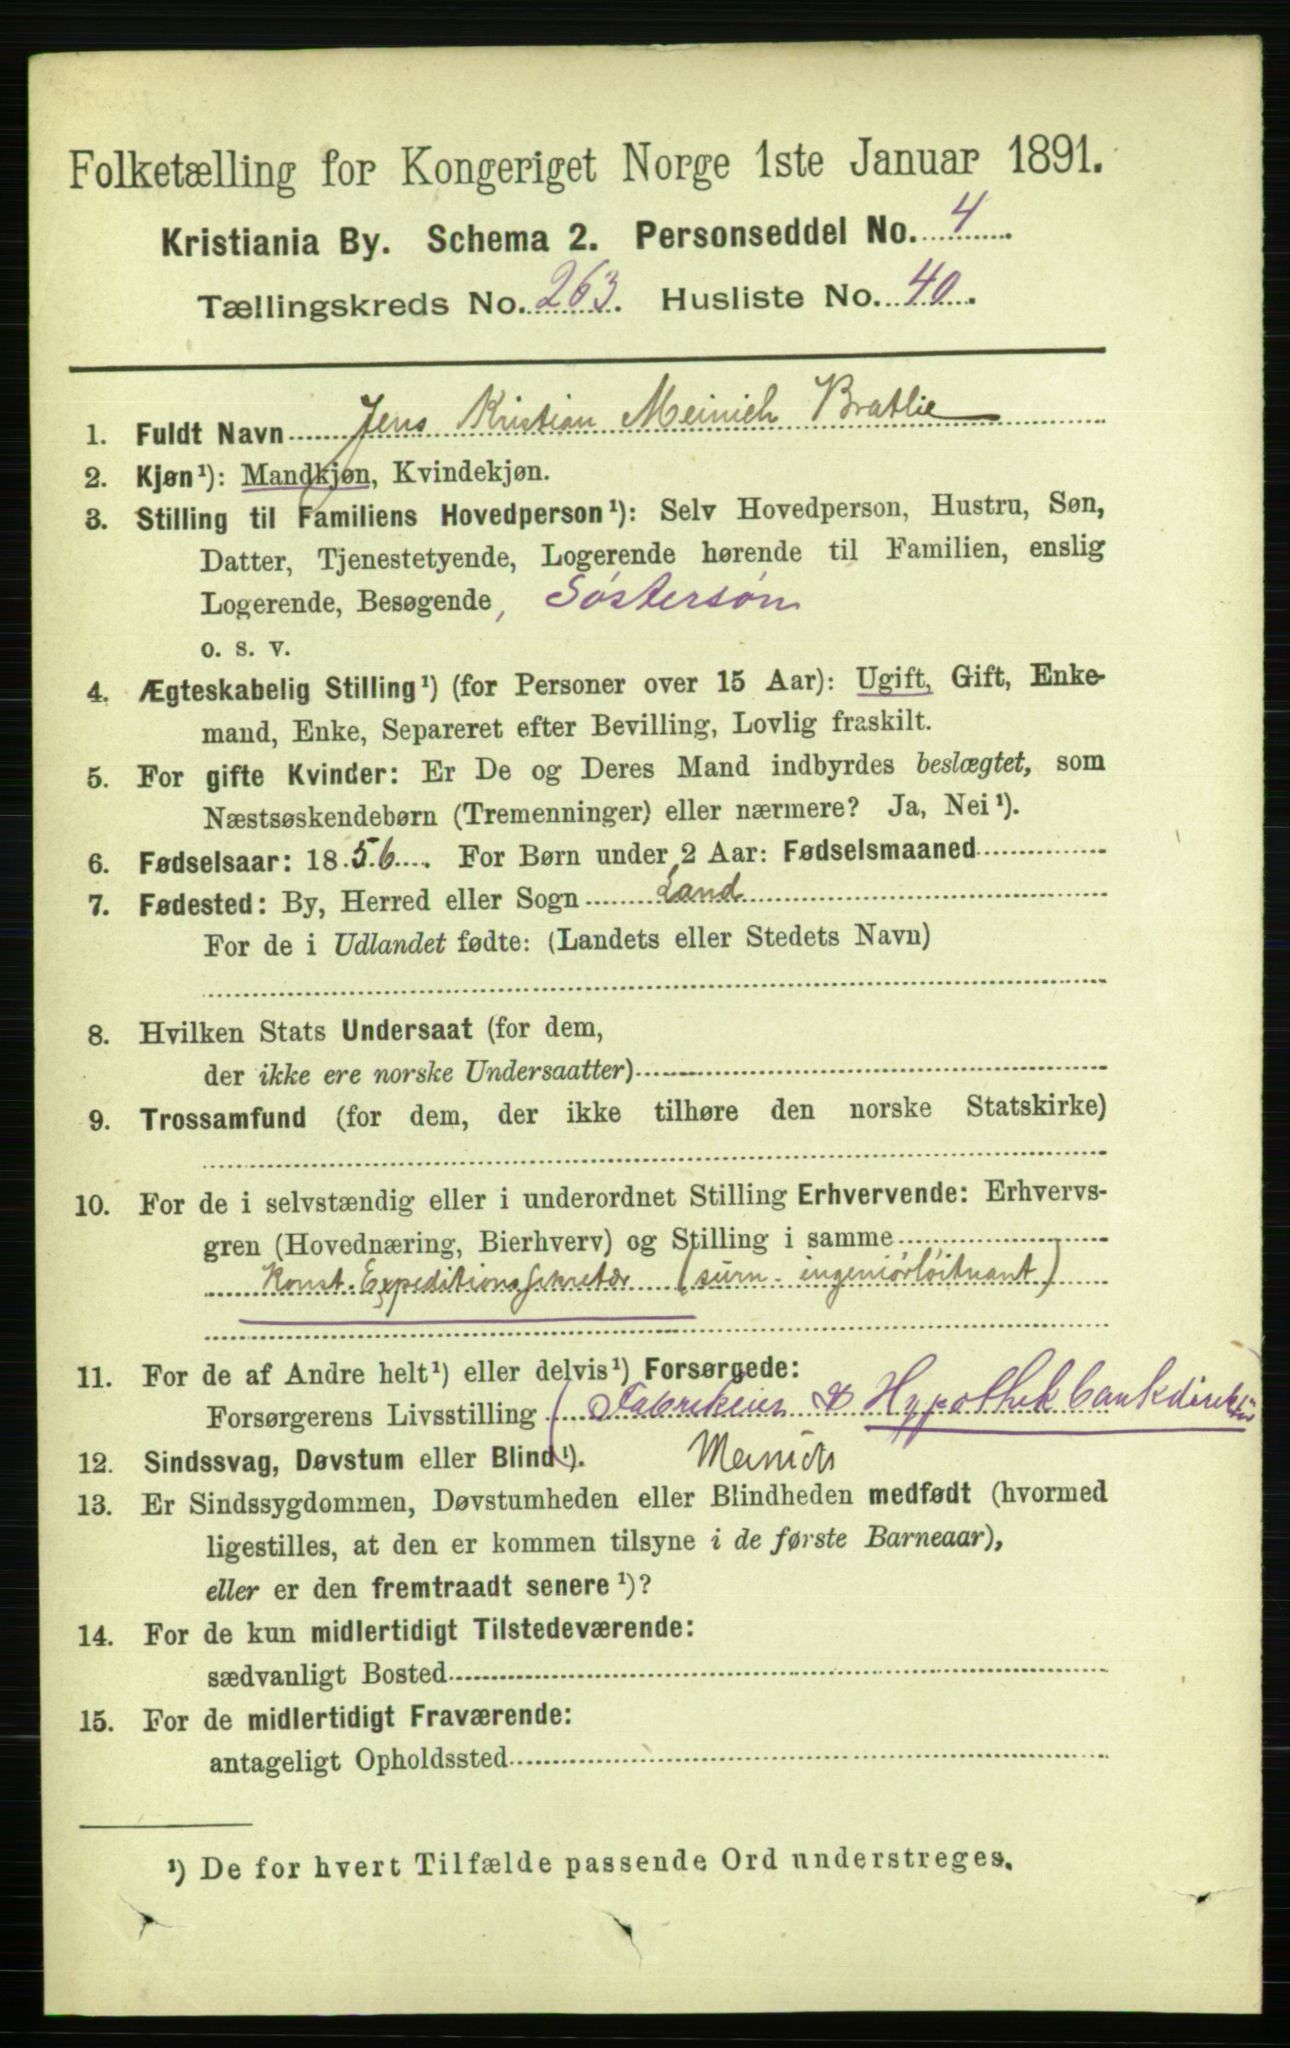 Folketælling for Kongeriget Norge 1ste Januar 1891.
Kristiania By. Schema 2. Personseddel No. 4
Tællingskreds No. 263. Husliste No. 40.
1. Fuldt Navn Jens Kristian Meinich Bratlie
2. Kjøn¹): Mandkjøn, Kvindekjøn.
3. Stilling til Familiens Hovedperson¹): Selv Hovedperson, Hustru, Søn,
Datter, Tjenestetyende, Logerende hørende til Familien, enslig
Logerende, Besøgende, Søstersøn
o. s. v.
4. Ægteskabelig Stilling¹) (for Personer over 15 Aar): Ugift, Gift, Enke-
mand, Enke, Separeret efter Bevilling, Lovlig fraskilt.
5. For gifte Kvinder: Er De og Deres Mand indbyrdes beslægtet, som
Næstsøskendebørn (Tremenninger) eller nærmere? Ja, Nei¹).
6. Fødselsaar: 1856. For Børn under 2 Aar: Fødselsmaaned
7. Fødested: By, Herred eller Sogn Land
For de i Udlandet fødte: (Landets eller Stedets Navn)
8. Hvilken Stats Undersaat (for dem,
der ikke ere norske Undersaatter)
9. Trossamfund (for dem, der ikke tilhøre den norske Statskirke)
10. For de i selvstændig eller i underordnet Stilling Erhvervende: Erhvervs-
gren (Hovednæring, Bierhverv) og Stilling i samme
Konst. Expeditionssekretær (surn. ingeniørløitnant)
11. For de af Andre helt¹) eller delvis¹) Forsørgede:
Forsørgerens Livsstilling (Fabrikeier & Hypothekbankdirektør
12. Sindssvag, Døvstum eller Blind¹). Meinich
13. Er Sindssygdommen, Døvstumheden eller Blindheden medfødt (hvormed
ligestilles, at den er kommen tilsyne i de første Barneaar),
eller er den fremtraadt senere¹)?
14. For de kun midlertidigt Tilstedeværende:
sædvanligt Bosted
15. For de midlertidigt Fraværende:
antageligt Opholdssted
¹) De for hvert Tilfælde passende Ord understreges.